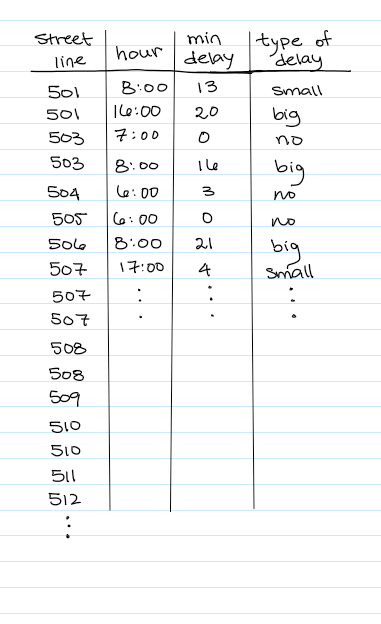 street line hour min delay type of delay
501 8:00 13 small
501 16:00 20 big
503 7:00 0 no
503 8:00 16 big
504 6:00 3 no
505 6:00 0 no
506 8:00 21 big
507 17:00 4 small
507 : : :
507 . . .
508
508
509
510
510
511
512
⋮